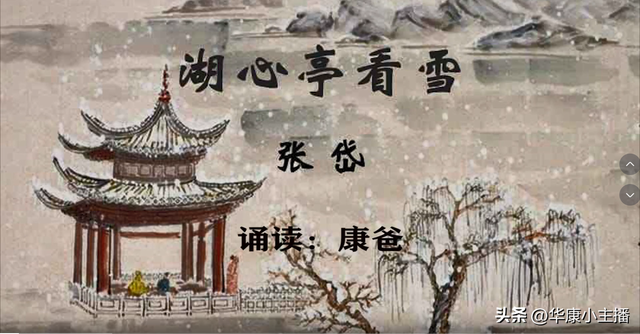 湖心亭看雪
张岱
诵读：康爸
头条 @华康小主播